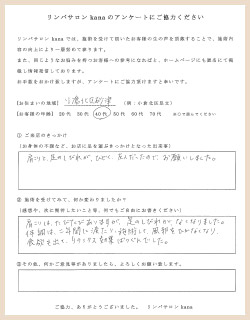 リンパサロン kana のアンケートにご協力ください
リンパサロン kana では、施術を受けて頂いたお客様の生の声を活動することで、施術内
容の向上により一層努めて参ります。
また、同じようなお悩みを持つお客様への参考になればと、ホームページにも匿名にて掲
載し情報発信しております。
お手数をおかけ致しますが、アンケートにご協力頂けますと幸いです。
【お住まいの地域】小倉北区砂津 (例:小倉北区足立)
【お客様の年齢】 20代 30代 40代 50代 60代 70代 ※○で囲んでください
① ご来店のきっかけ
(お身体の不調など、お店に足を運ぶきっかけとなった出来事)
肩こりと、足のしびれが、ひどく、なんだったので お願いしました。
② 施術を受けてみて、何か変わりましたか?
(感想や、次に期待したいこと等、何でもご自由にお書きください)
肩こりは、たびたびありますが、足のしびれが なくなりました。
③その他、何かご意見等がありましたら、よろしくお願い致します。
ご協力、ありがとうございました。 リンパサロン kana